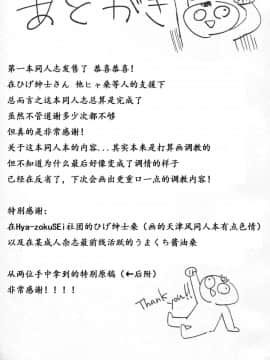 あとがき
第一本同人志发售了 恭喜恭喜!
在ひげ紳士さん 他ヒャ桑等人的支援下
总而言之这本同人志总算是完成了
虽然不管道谢多少次都不够
但真的是非常感谢!
关于这本同人本的内容...其实本来是打算画调教的
但不知道为什么最后好像变成了调情的样子
已经在反省了,下次会画出更重口一点的调教内容!
特别感谢:
在Hya-zokuSEi社团的ひげ紳士桑(画的天津风同人本有点色情)
以及在某成人杂志最前线活跃的うまくち醤油桑
从两位手中拿到的特别原稿(←后附)
非常感谢!!!!
Thank you!!